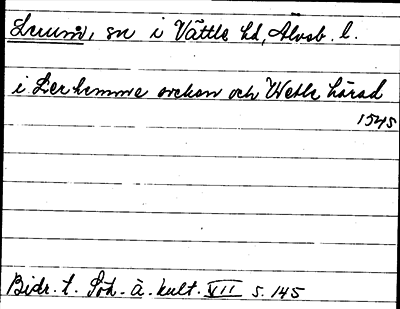 Lerum, sn i Vättle hd, Älvsb. l.
i Lerhemme socken och Wetle härad
1545
Bidr. t. Göt. ä. kult. VII s. 145